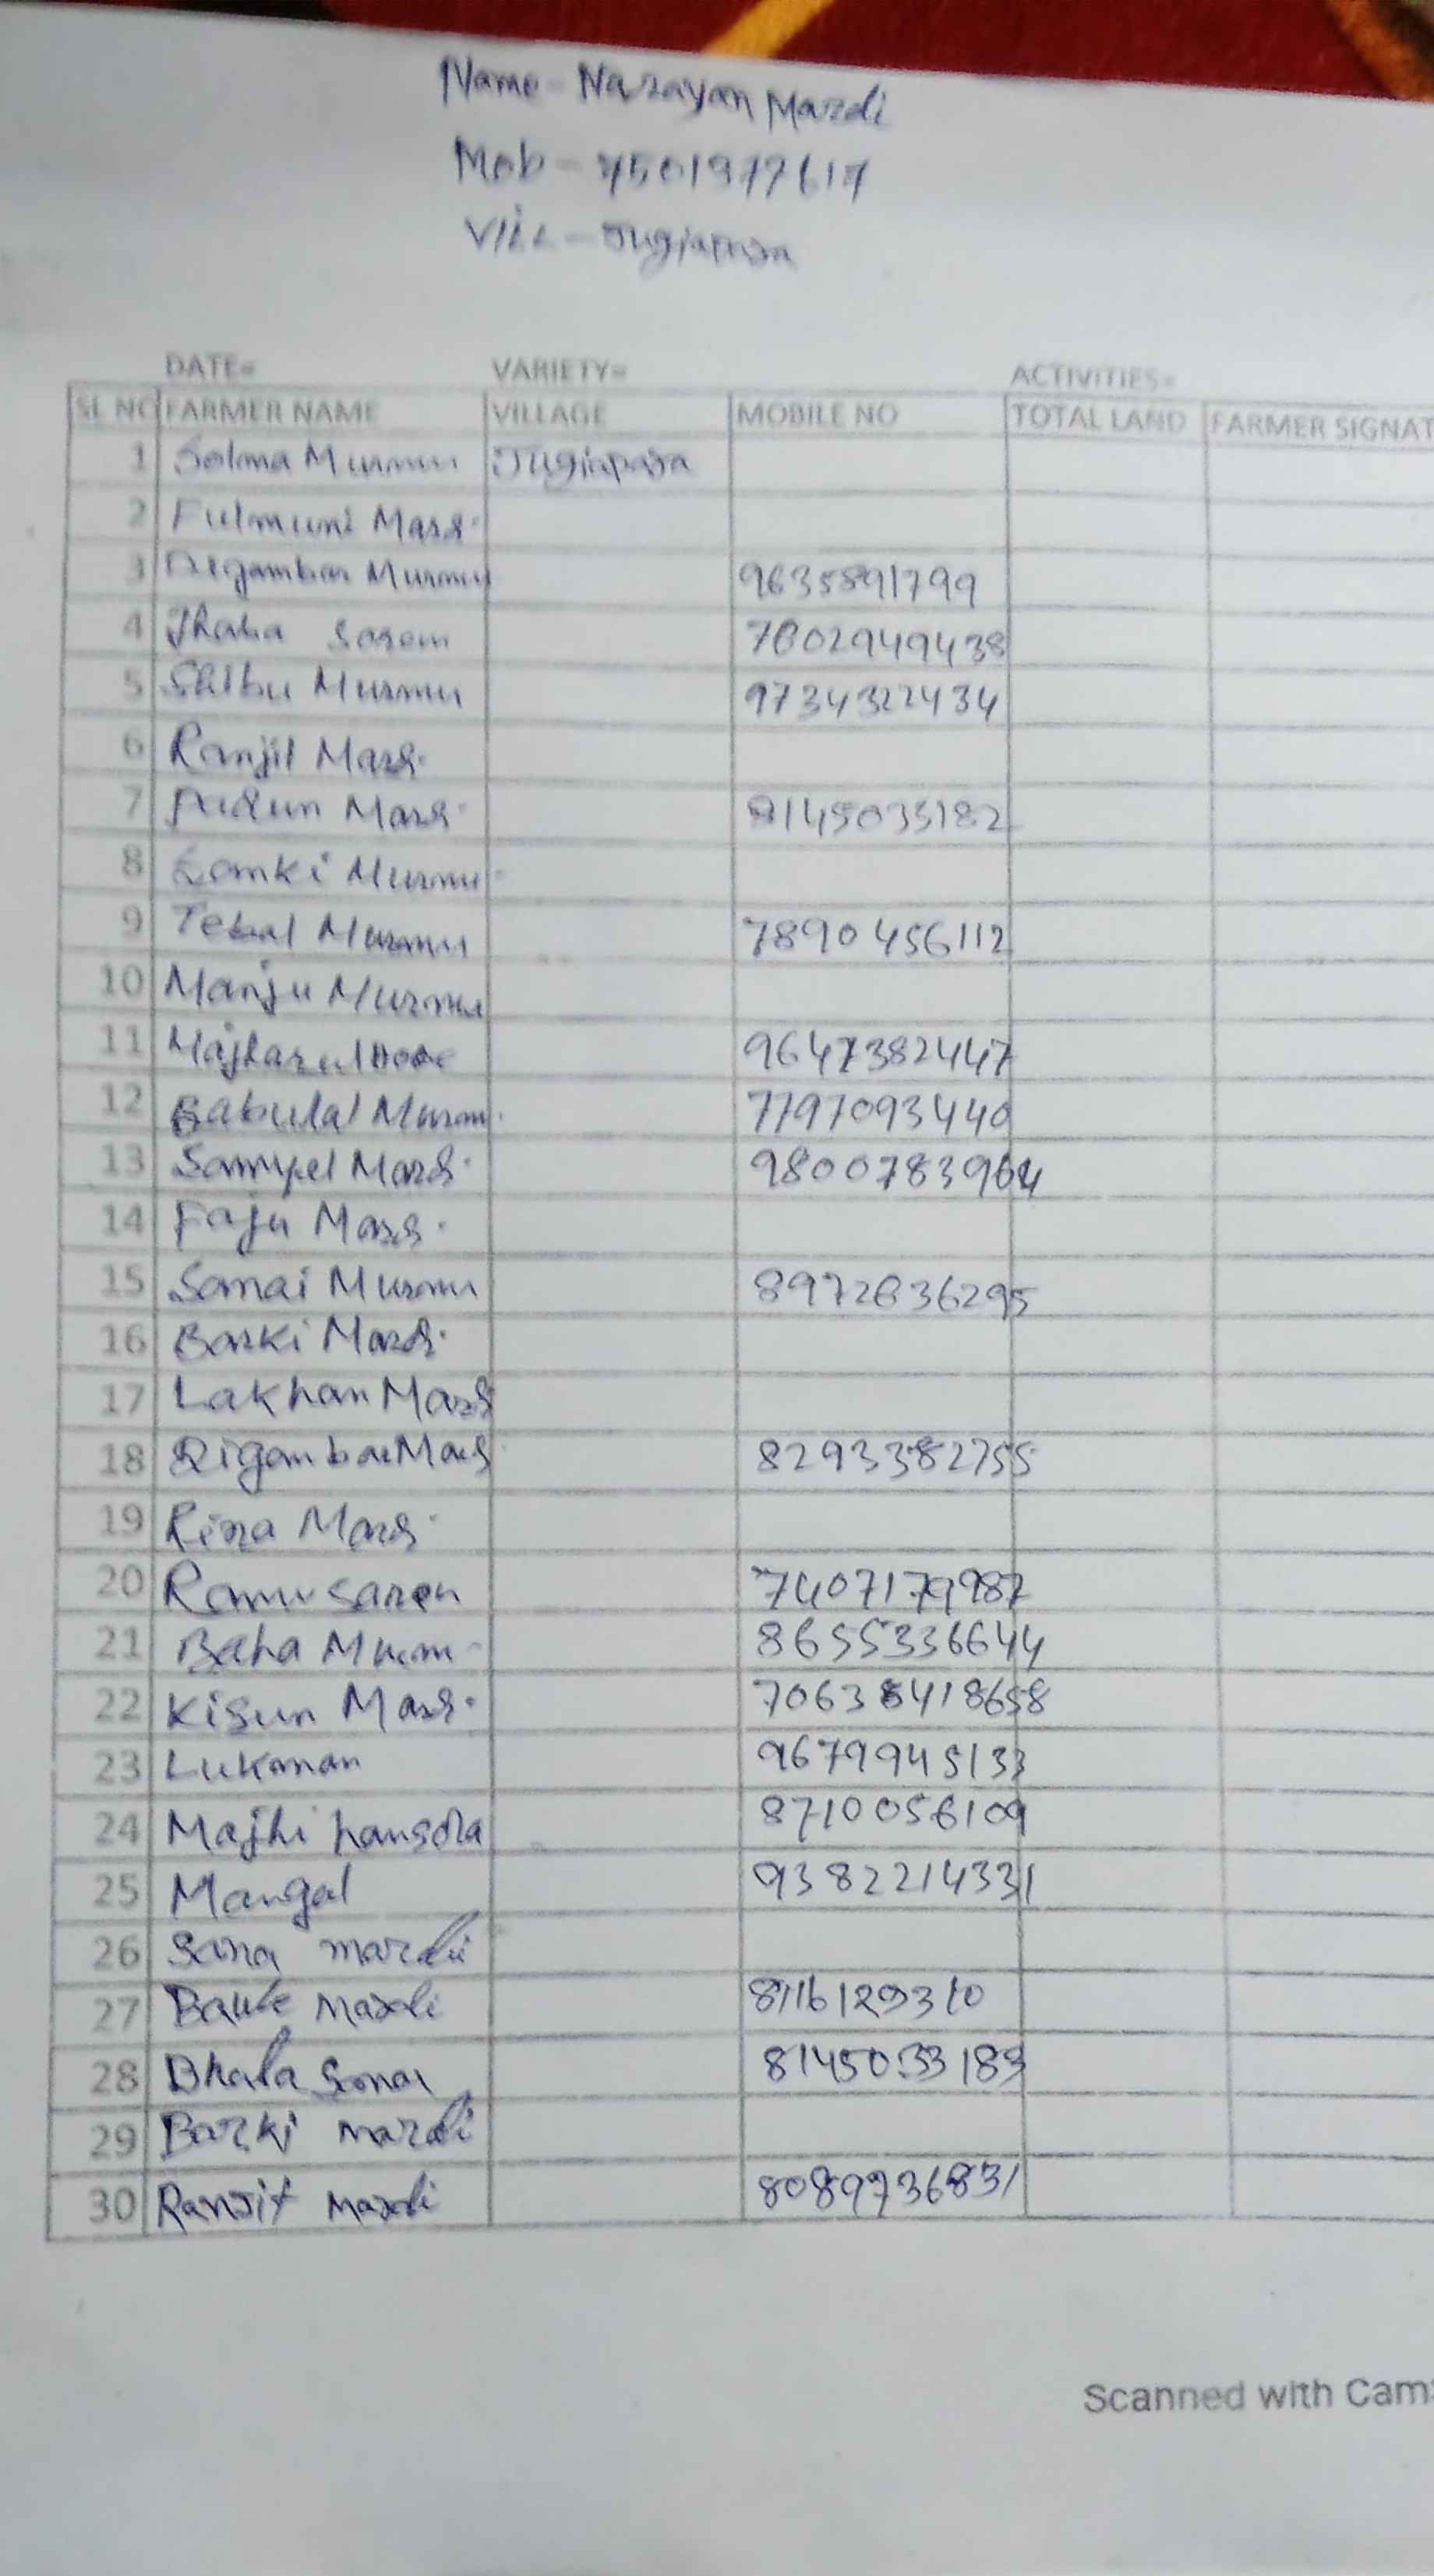 Name - Narayan Mardi
Mob - 7501977617
Vill - Jugiapara
DATE= VARIETY= ACTIVITIES=
SL NO FARMER NAME VILLAGE MOBILE NO TOTAL LAND FARMER SIGNAT
1 Solma Murmu Jugiapara
2 Fulmuni Mardi
3 Digambar Murmu 9635891799
4 Jhaba Soren 7602949438
5 Shibu Murmu 9734322434
6 Ranjit Mardi
7 Mardi 8145035182
8 Somki Murmu
9 Murmu 7890456112
10 Manju Murmu
11 9647382447
12 Babulal Murmu 7797093440
13 Samyel Mardi 9800783964
14 Faju Mardi
15 Somai Murmu 8972636295
16 Barki Mardi
17 Lakhan Mardi
18 Digambar Mardi 8293382755
19 Rina Mardi
20 Ramu saren 7407179987
21 Baha Murmu 8655336644
22 Kisun Mardi
23 Lukman 9679945133
24 Majhi hansda 8710056109
25 Mangal 9382214331
26 Sona mardi
27 mardi 8116129310
28 8145033183
29 Barki mardi
30 Ranjit mardi 8089736831
Scanned with Cam